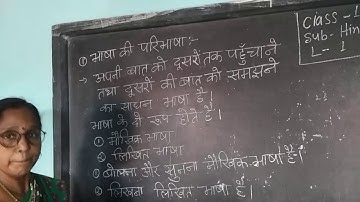 ① भाषा की परिभाषा:-
→ अपनी बात को दूसरों तक पहुँचाने
तथा दूसरों की बात को समझने
का साधन भाषा है।
भाषा के दो रूप होते हैं।
① मौखिक भाषा
② लिखित भाषा
① बोलना और सुनना मौखिक भाषा है।
② लिखना लिखित भाषा है।
Class - 1
Sub - Hin
L - 1